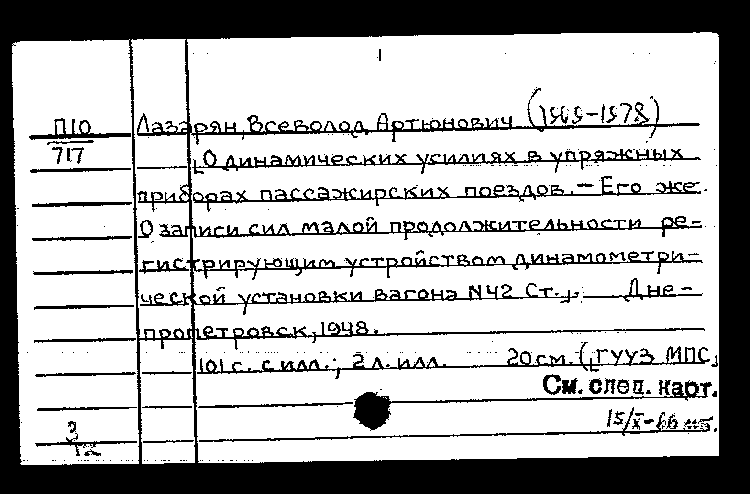 П10
717
Лазарян, Всеволод Артюнович (1909-1978)
[О динамических усилиях в упряжных
приборах пассажирских поездов. – Его же.
О записи сил малой продолжительности ре=
гистрирующим устройством динамометри=
ческой установки вагона N42 Ст.]. Дне=
пропетровск, 1948.
101 с. с илл.; 2 л. илл. 20 см. ([ГУУЗ МПС]
См. след. карт.
3
12
15/X-66